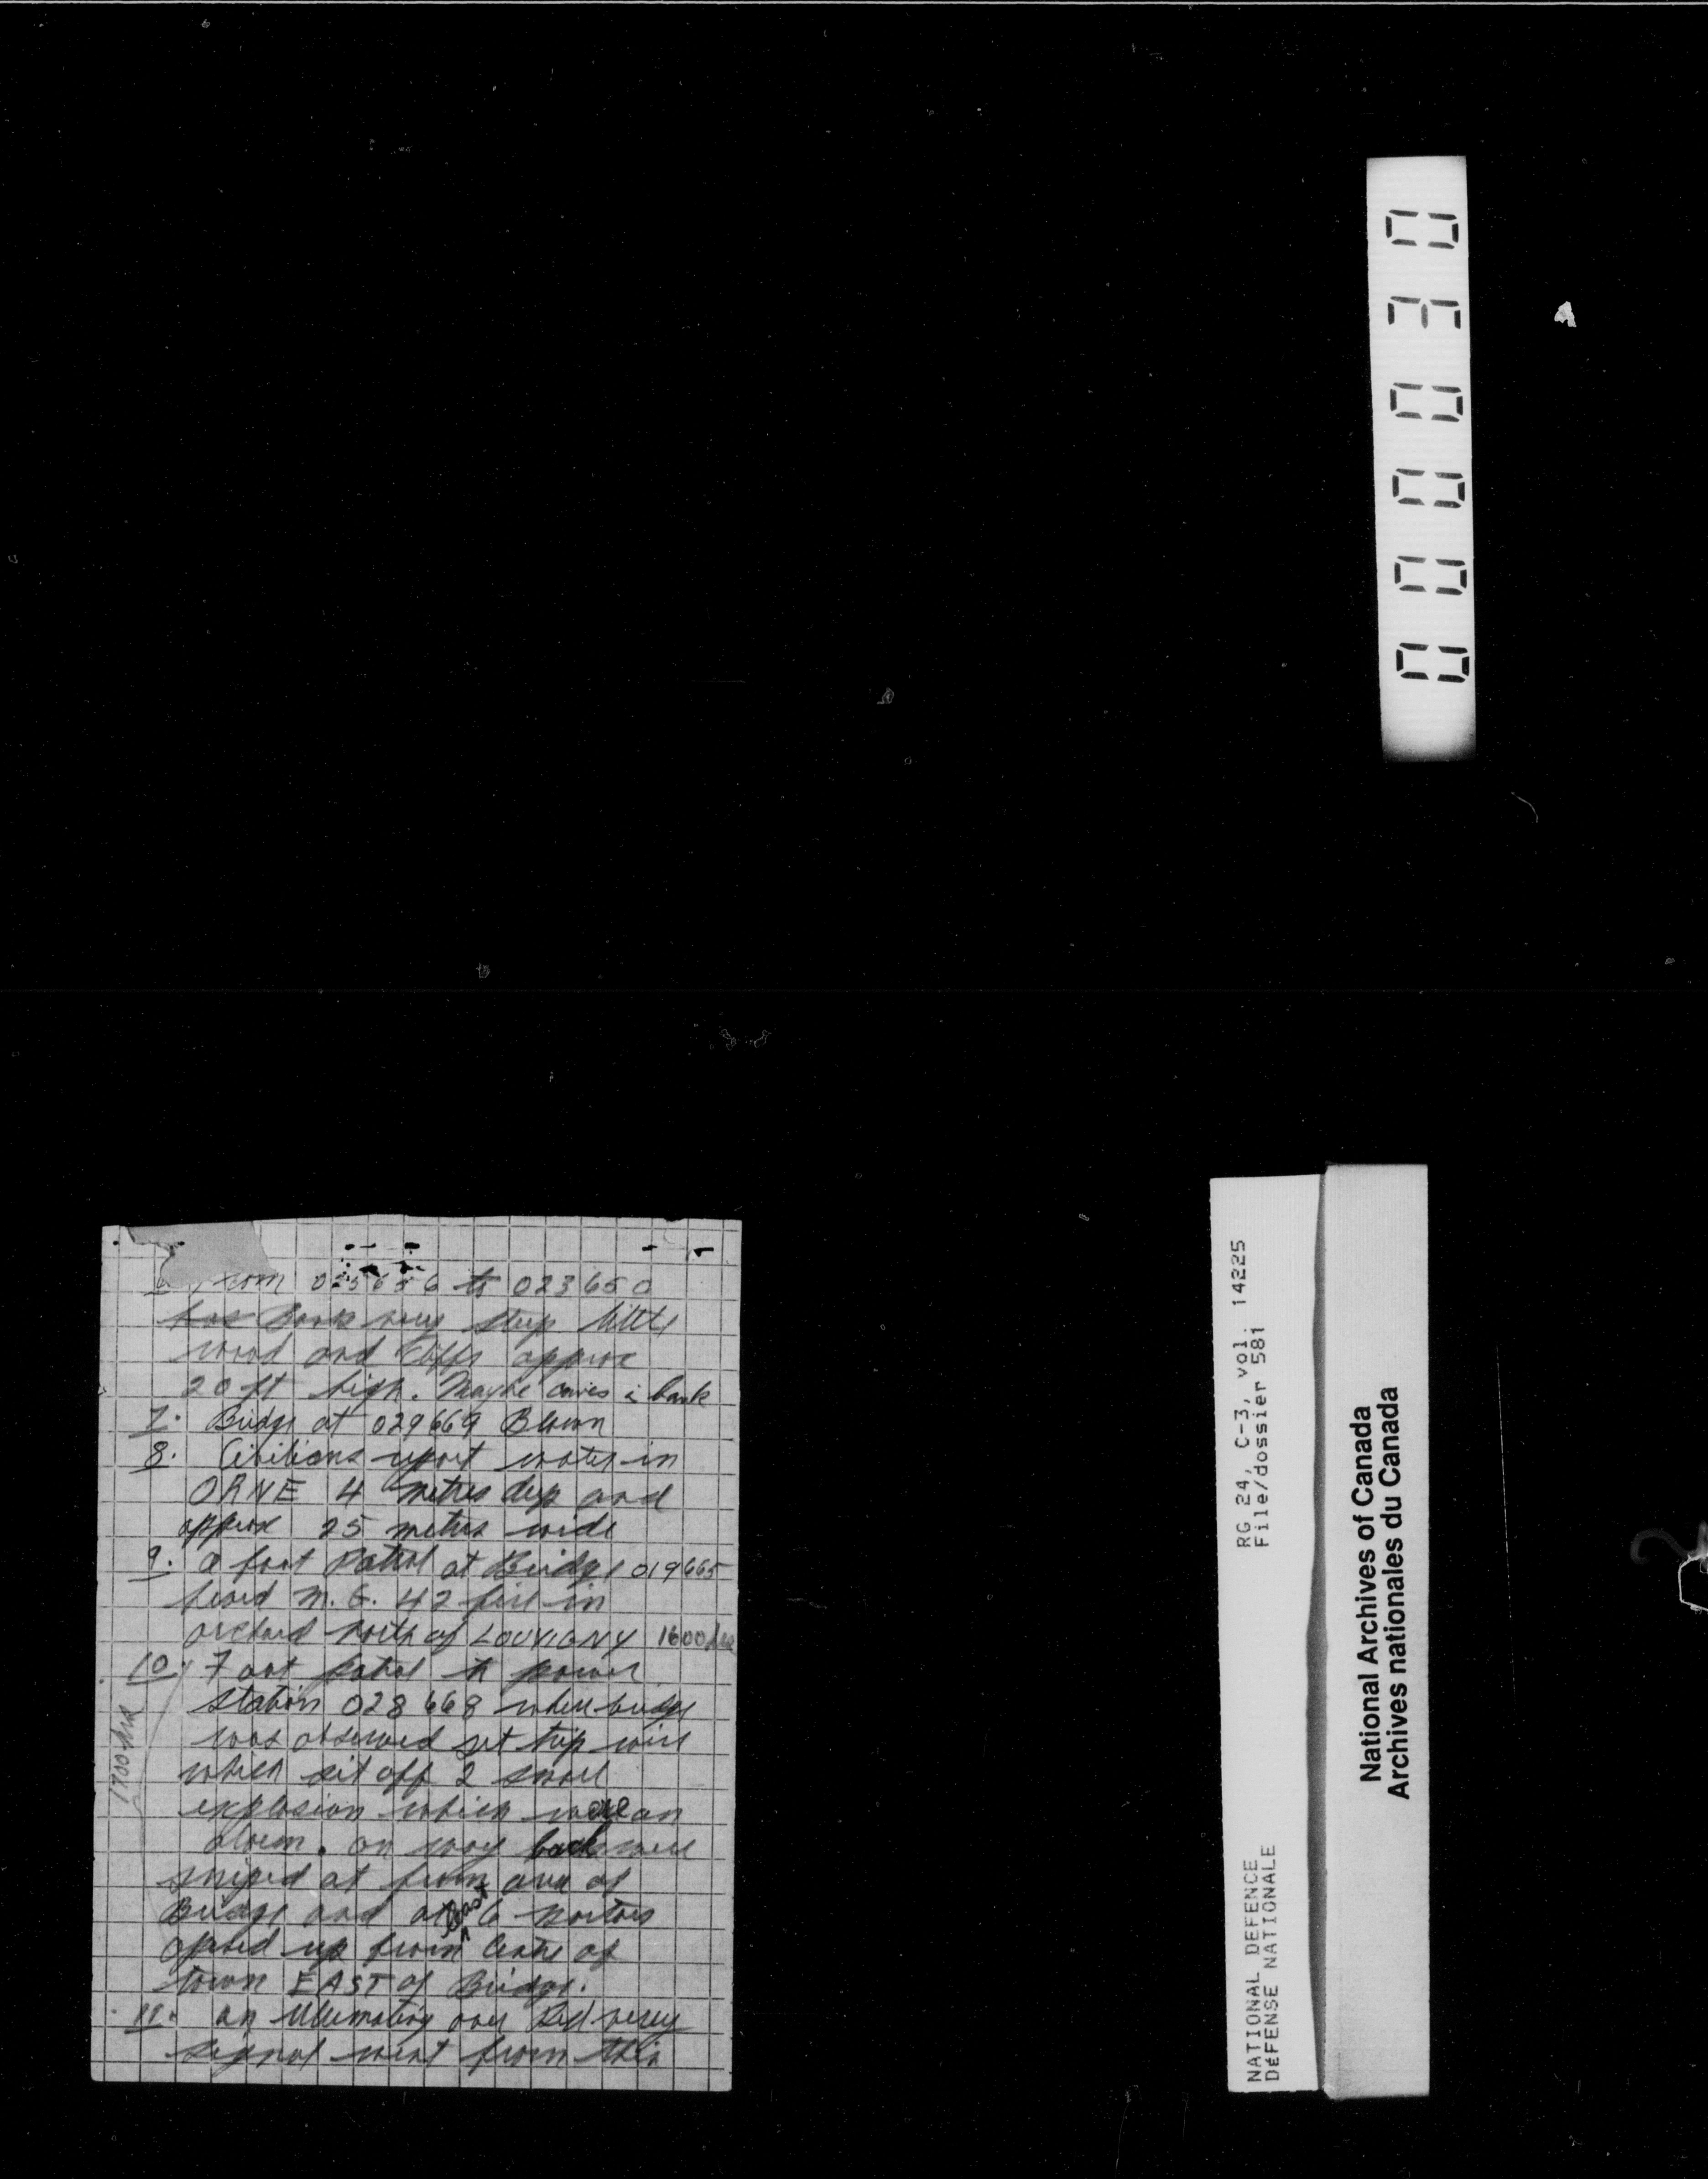 from 025656 to 023650
has bank very steep little
wood and cliffs approx
20 ft high. Maybe caves in bank
7. Bridge at 029669 Blown
8. Civilians report water in
ORNE 4 metres deep and
approx 25 metres wide
9. a foot Patrol at Bridge 019665
heard M.G. 42 fire in
orchard north of LOUVIGNY 1600 hrs
10. Foot patrol to power
station 028668 where bridge
was observed set trip wire
which set off 2 small
explosion which were an
alarm. on way back were
sniped at from area of
Bridge and at 6 mortars
opened up from centre of
town EAST of Bridge.
11. an illuminating over Red very
signal went from this
1700 hrs
000030
RG 24, C-3, vol. 14225
File/dossier 581
NATIONAL DEFENCE
DéFENSE NATIONALE
National Archives of Canada
Archives nationales du Canada